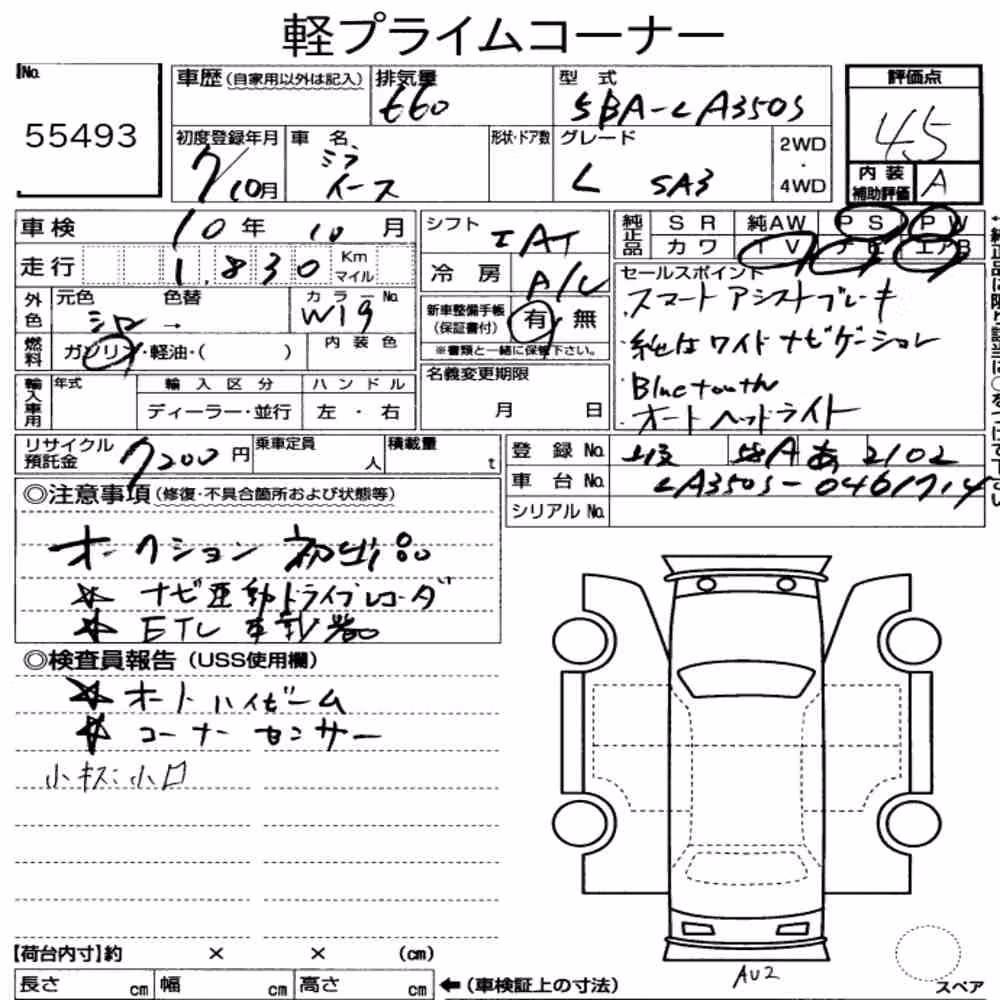 軽プライムコーナー
No.
55493
車歴(自家用以外は記入)
排気量
660
型 式
5BA-LA350S
評価点
4.5
初度登録年月
7/10月
車 名
ミラ
イース
形状・ドア数
グレード
L SA3
2WD
・
4WD
内 装
補助評価
A
車検
10年 10月
シフト
IAT
純正品
SR 純AW PS PW
カワ TV ナビ エアB
走行
1,830 Km
マイル
冷 房
A/C
セールスポイント
スマートアシストブレーキ
純正ワイドナビゲーション
Bluetooth
オートヘッドライト
外色
元色
色替
シロ →
カラーNo.
W19
新車整備手帳
(保証書付)
有 無
※書類と一緒に保管下さい。
燃料
ガソリン・軽油・( )
内 装 色
輸入車用
年式
輸 入 区 分
ハ ン ド ル
ディーラー・並行
左 ・ 右
名義変更期限
月 日
リサイクル
預託金
7200 円
乗車定員
人
積載量
t
登 録 No.
58A あ 2102
車 台 No.
LA350S-0461714
シリアル No.
◎注意事項(修復・不具合箇所および状態等)
オークション 初出品
☆ ナビ連動ドライブレコーダ
☆ ETC 車載器
◎検査員報告(USS使用欄)
☆ オートハイビーム
☆ コーナーセンサー
小キズ小凹
【荷台内寸】約 × × (cm)
長さ cm 幅 cm 高さ cm
←(車検証上の寸法)
AU2
スペア